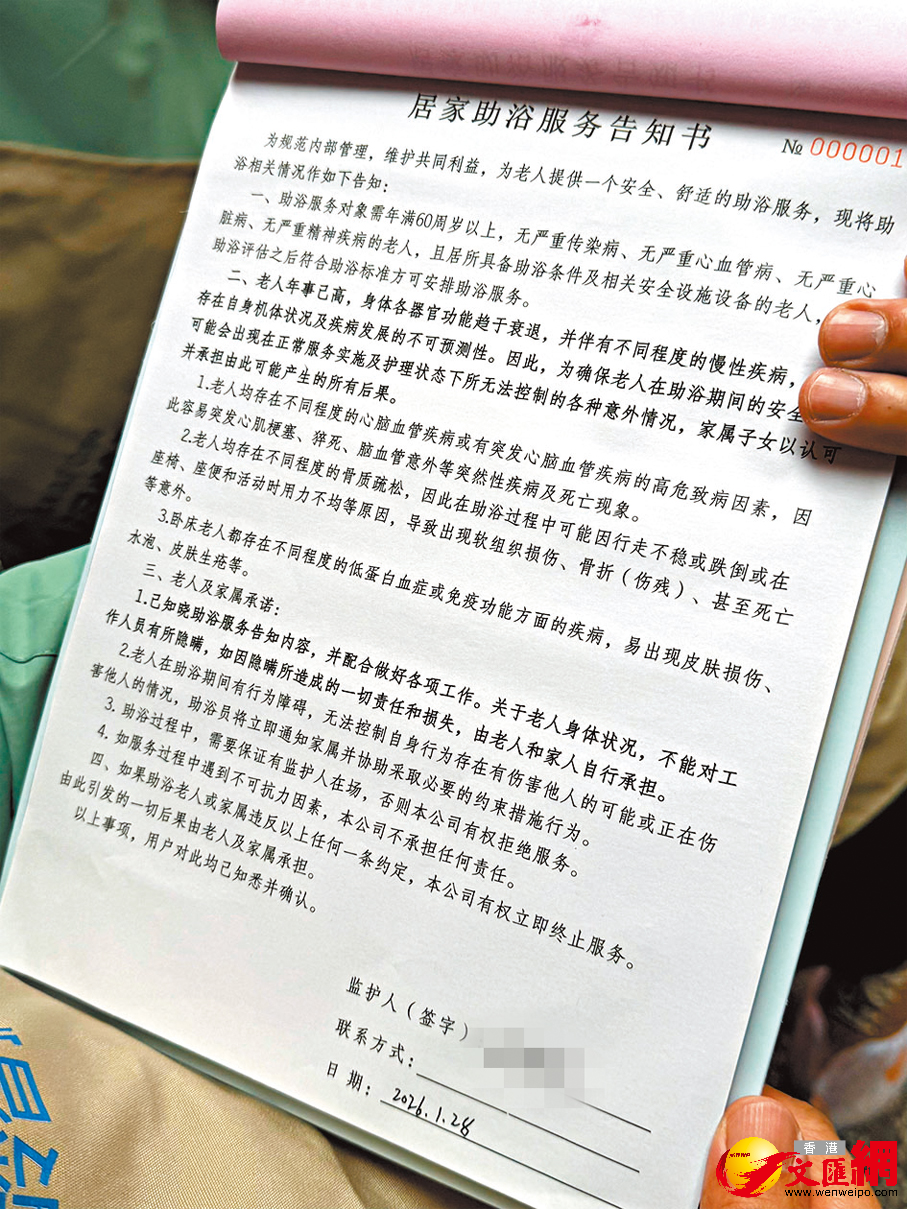 居家助浴服务告知书
№ 000001
为规范内部管理，维护共同利益，为老人提供一个安全、舒适的助浴服务，现将助
浴相关情况作如下告知：
一、助浴服务对象需年满60周岁以上，无严重传染病、无严重心血管病、无严重心
脏病、无严重精神疾病的老人，且居所具备助浴条件及相关安全设施设备的老人，
助浴评估之后符合助浴标准方可安排助浴服务。
二、老人年事已高，身体各器官功能趋于衰退，并伴有不同程度的慢性疾病，
存在自身机体状况及疾病发展的不可预测性。因此，为确保老人在助浴期间的安全
可能会出现在正常服务实施及护理状态下所无法控制的各种意外情况，家属子女以认可
并承担由此可能产生的所有后果。
1.老人均存在不同程度的心脑血管疾病或有突发心脑血管疾病的高危致病因素，因
此容易突发心肌梗塞、猝死、脑血管意外等突然性疾病及死亡现象。
2.老人均存在不同程度的骨质疏松，因此在助浴过程中可能因行走不稳或跌倒或在
座椅、座便和活动时用力不均等原因，导致出现软组织损伤、骨折（伤残）、甚至死亡
等意外。
3.卧床老人都存在不同程度的低蛋白血症或免疫功能方面的疾病，易出现皮肤损伤、
水泡、皮肤生疮等。
三、老人及家属承诺：
1.已知晓助浴服务告知内容，并配合做好各项工作。关于老人身体状况，不能对工
作人员有所隐瞒，如因隐瞒所造成的一切责任和损失，由老人和家人自行承担。
2.老人在助浴期间有行为障碍，无法控制自身行为存在有伤害他人的可能或正在伤
害他人的情况，助浴员将立即通知家属并协助采取必要的约束措施行为。
3. 助浴过程中，需要保证有监护人在场，否则本公司有权拒绝服务。
4. 如服务过程中遇到不可抗力因素，本公司不承担任何责任。
四、如果助浴老人或家属违反以上任何一条约定，本公司有权立即终止服务。
由此引发的一切后果由老人及家属承担。
以上事项，用户对此均已知悉并确认。
监护人（签字）
联系方式：
日 期：2026.1.28
香港
文匯網
www.wenweipo.com